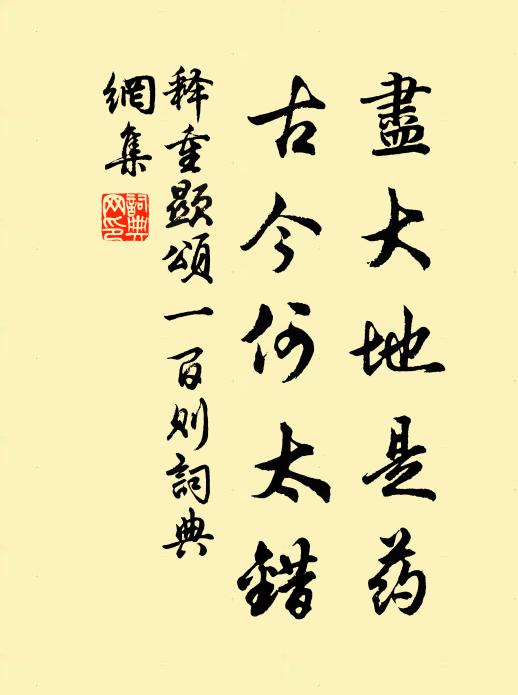 盡大地是药
古今何太錯
释重顯頌一百則詞典
網集
詞典
网印